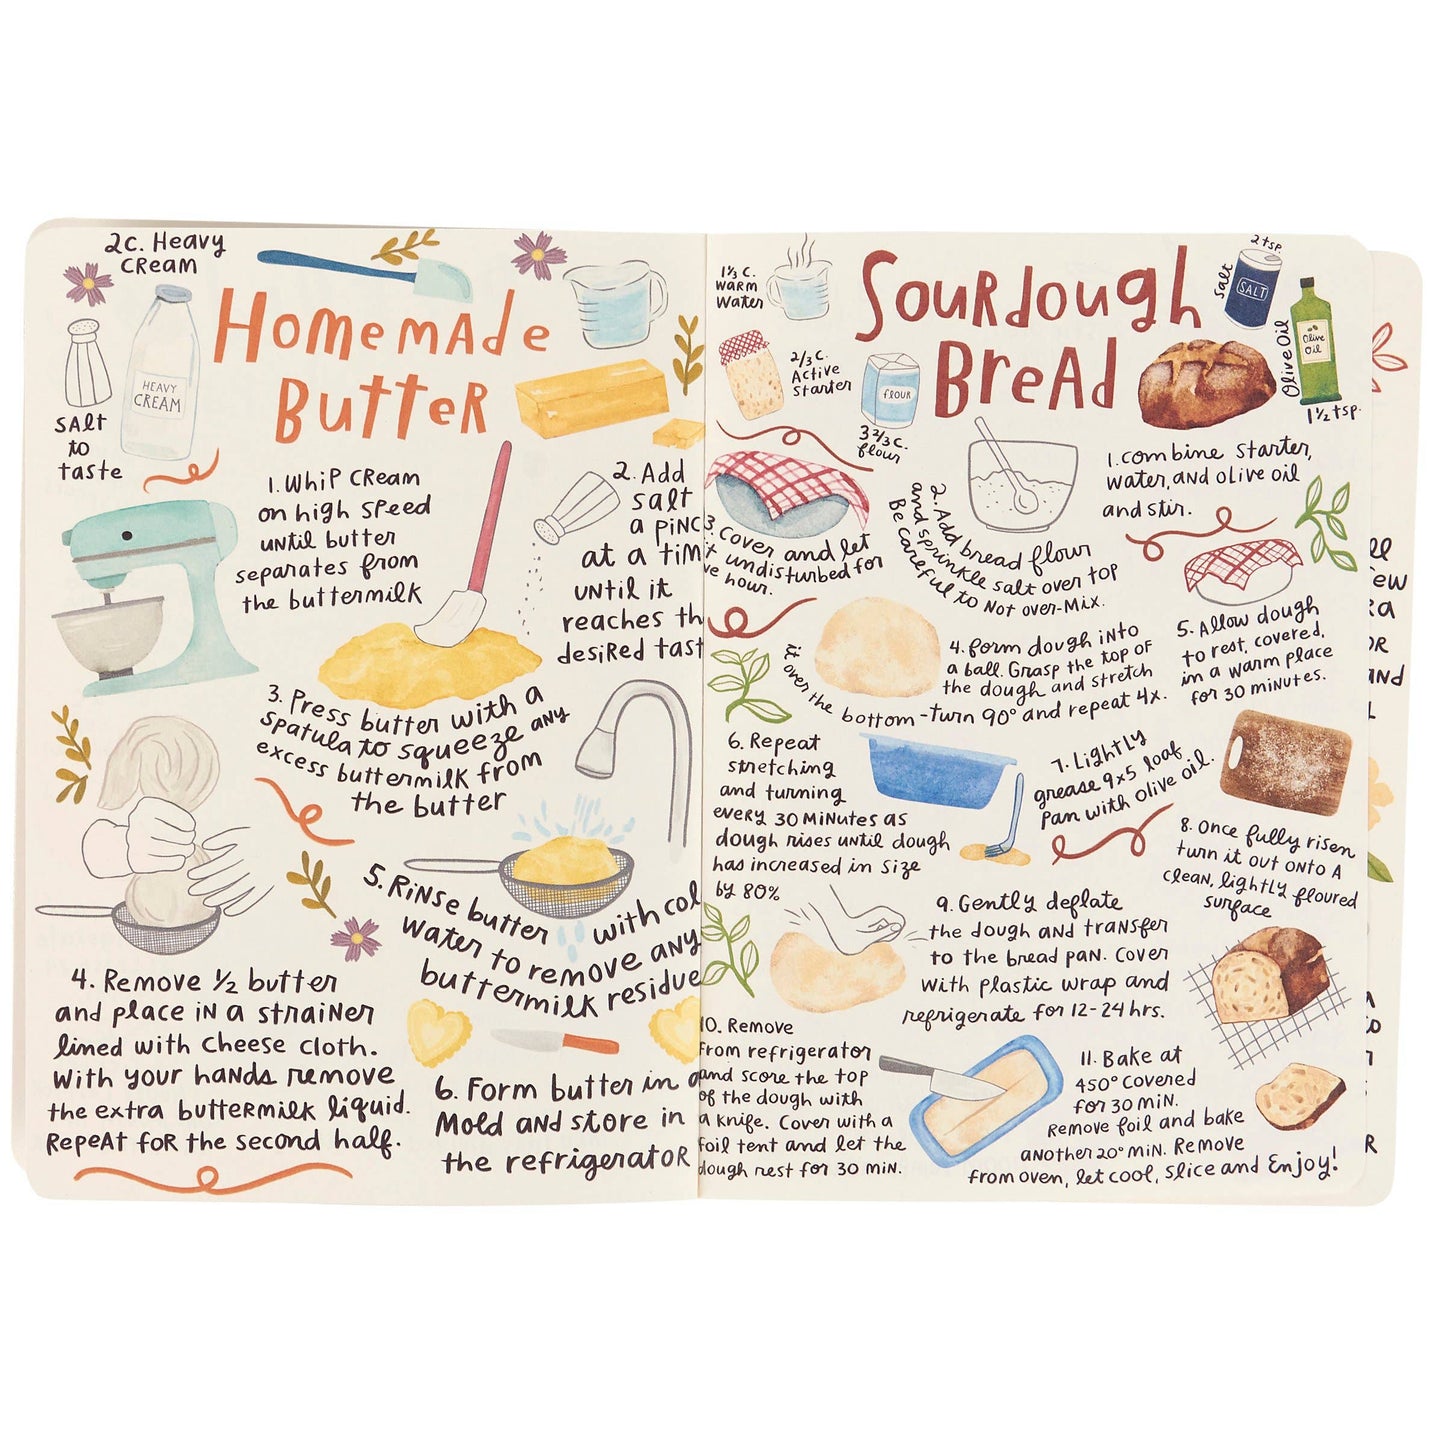 2c. Heavy
cream
Homemade
Butter
HEAVY
CREAM
Salt
to
taste
1. Whip cream
on high speed
until butter
separates from
the buttermilk
2. Add
salt
a pinc
at a tim
until it
reaches th
desired tast
3. Press butter with a
spatula to squeeze any
excess buttermilk from
the butter
4. Remove ½ butter
and place in a strainer
lined with cheese cloth.
With your hands remove
the extra buttermilk liquid.
Repeat for the second half.
5. Rinse butter with col
water to remove any
buttermilk residue
6. Form butter in a
mold and store in
the refrigerator
1⅓ c.
warm
water
Sourdough
Bread
2 tsp.
Salt
SALT
Olive Oil
Olive
Oil
1½ tsp.
2/3 c.
Active
starter
flour
3 2/3 c.
flour
1. combine starter,
water, and olive oil
and stir.
2. Add bread flour
and sprinkle salt over top
Be careful to not over-mix.
3. Cover and let
it undisturbed for
hour.
4. form dough into
a ball. Grasp the top of
the dough and stretch
it over the bottom - turn 90° and repeat 4x.
5. Allow dough
to rest, covered,
in a warm place
for 30 minutes.
6. Repeat
stretching
and turning
every 30 minutes as
dough rises until dough
has increased in size
by 80%
7. Lightly
grease 9x5 loaf
pan with olive oil.
8. Once fully risen
turn it out onto a
clean, lightly floured
surface
9. Gently deflate
the dough and transfer
to the bread pan. Cover
with plastic wrap and
refrigerate for 12-24 hrs.
10. Remove
from refrigerator
and score the top
of the dough with
a knife. Cover with a
foil tent and let the
dough rest for 30 min.
11. Bake at
450° covered
for 30 min.
Remove foil and bake
another 20° min. Remove
from oven, let cool, slice and Enjoy!